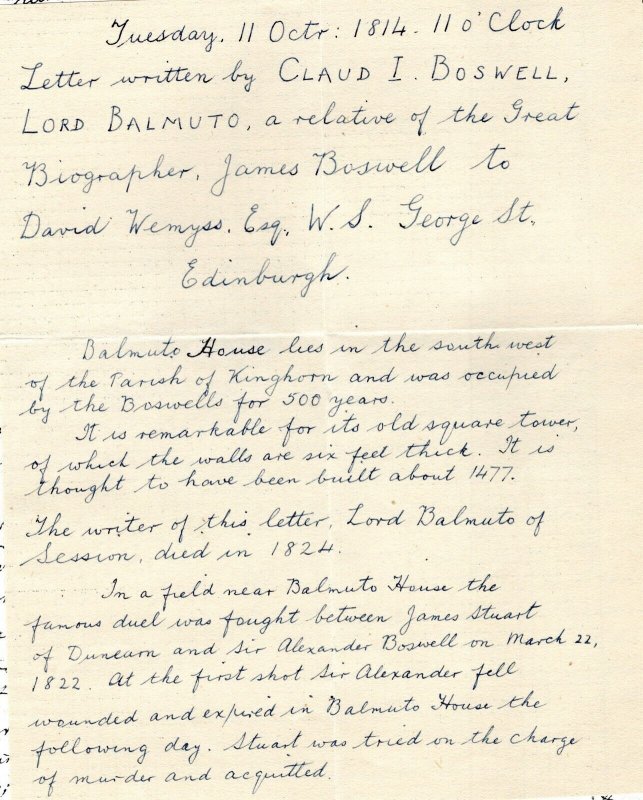 Tuesday, 11 Octr: 1814. 11 o'Clock
Letter written by CLAUD I. BOSWELL,
LORD BALMUTO, a relative of the Great
Biographer, James Boswell to
David Wemyss. Esq. W.S. George St.
Edinburgh.
Balmuto House lies in the south west
of the Parish of Kinghorn and was occupied
by the Boswells for 500 years.
It is remarkable for its old square tower,
of which the walls are six feet thick. It is
thought to have been built about 1477.
The writer of this letter, Lord Balmuto of
Session, died in 1824.
In a field near Balmuto House the
famous duel was fought between James Stuart
of Dunearn and Sir Alexander Boswell on March 22,
1822. At the first shot Sir Alexander fell
wounded and expired in Balmuto House the
following day. Stuart was tried on the charge
of murder and acquitted.